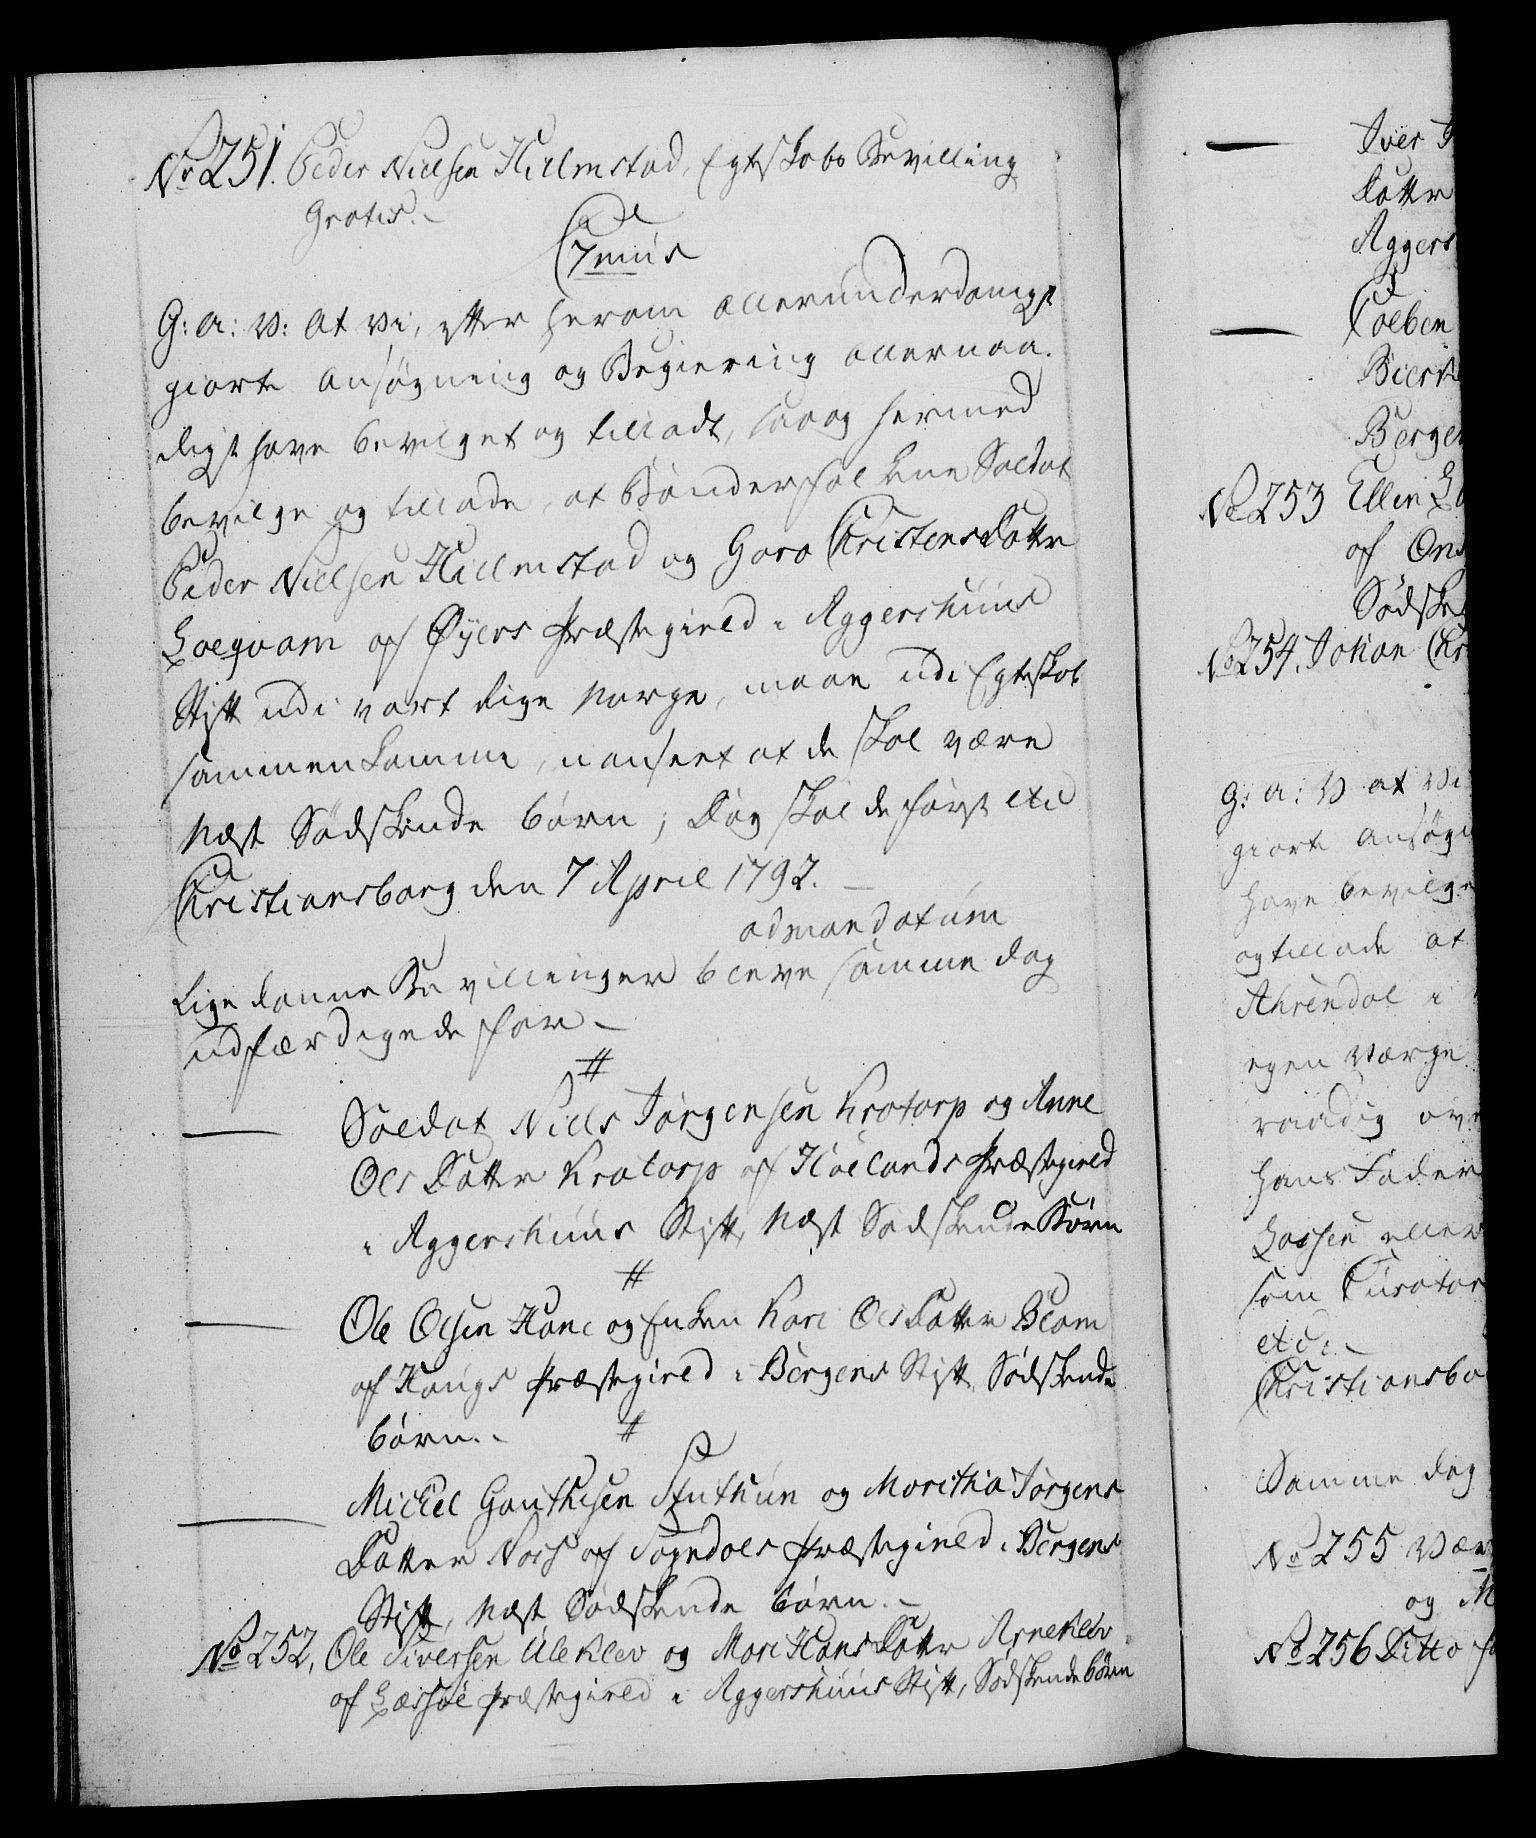 No 251. Peder Nielsen Hielmstad, Egteskabs Bevilling
Gratis.-
C 7mus
G: A: V: At Vi, efter herom allerunderdanigst
giorte Ansøgning og Begiering allernaa-
digst have bevilget og tilladt, saa og hermed
bevilge og tillade, at Bønderfolkene Soldat
Peder Nielsen Hielmstad og Goro ChristensDatter
Loeqvam af Øyers Præstegield i Aggershuus
Stift udi vort Rige Norge, maae udi Egteskab
sammenkomme, uanseet at de skal være
Næst Sødskende børn; Dog skal de først etc
Christiansborg den 7 April 1792. -
ad mandatum
Lige danne Bevillinger bleve samme dag
udfærdigede for -
#
Soldat Niels Jørgensen Krotorp og Anne
OlsDatter Krotorp af Høelands Præstegield
i Aggershuus Stift, Næst SødskendeBørn
#
Ole Olsen Hane og Enken Kari OlsDatter Blom
af Hougs Præstegield i Bergens Stift, Sødskende
børn.-
#
Michel Gouthesen Stuthun og Moritha Jørgens
Datter Noss af Sogndals Præstegield i Bergens
Stift, Næst Sødskende børn.-
No 252, Ole Siversen Uleklev og Mari HansDatter Arneklev
af Læssøe Præstegield i Aggershuus Stift, Sødskendebørn
Iver
Datter
Aggers
Colben
Bergen
No 253 Ellen
af Ons
Sødske
No 254. Johan Chr
G: A: V at Vi
giort ansøgn
have bevilge
og tillade at
Ahrendal i
egen Værge
raadig ove
hans Fader
Lassen eller
som Curator
etc:-
Christiansbo
Samme dag
No 255 Vær
og M
No 256 Ditto fo